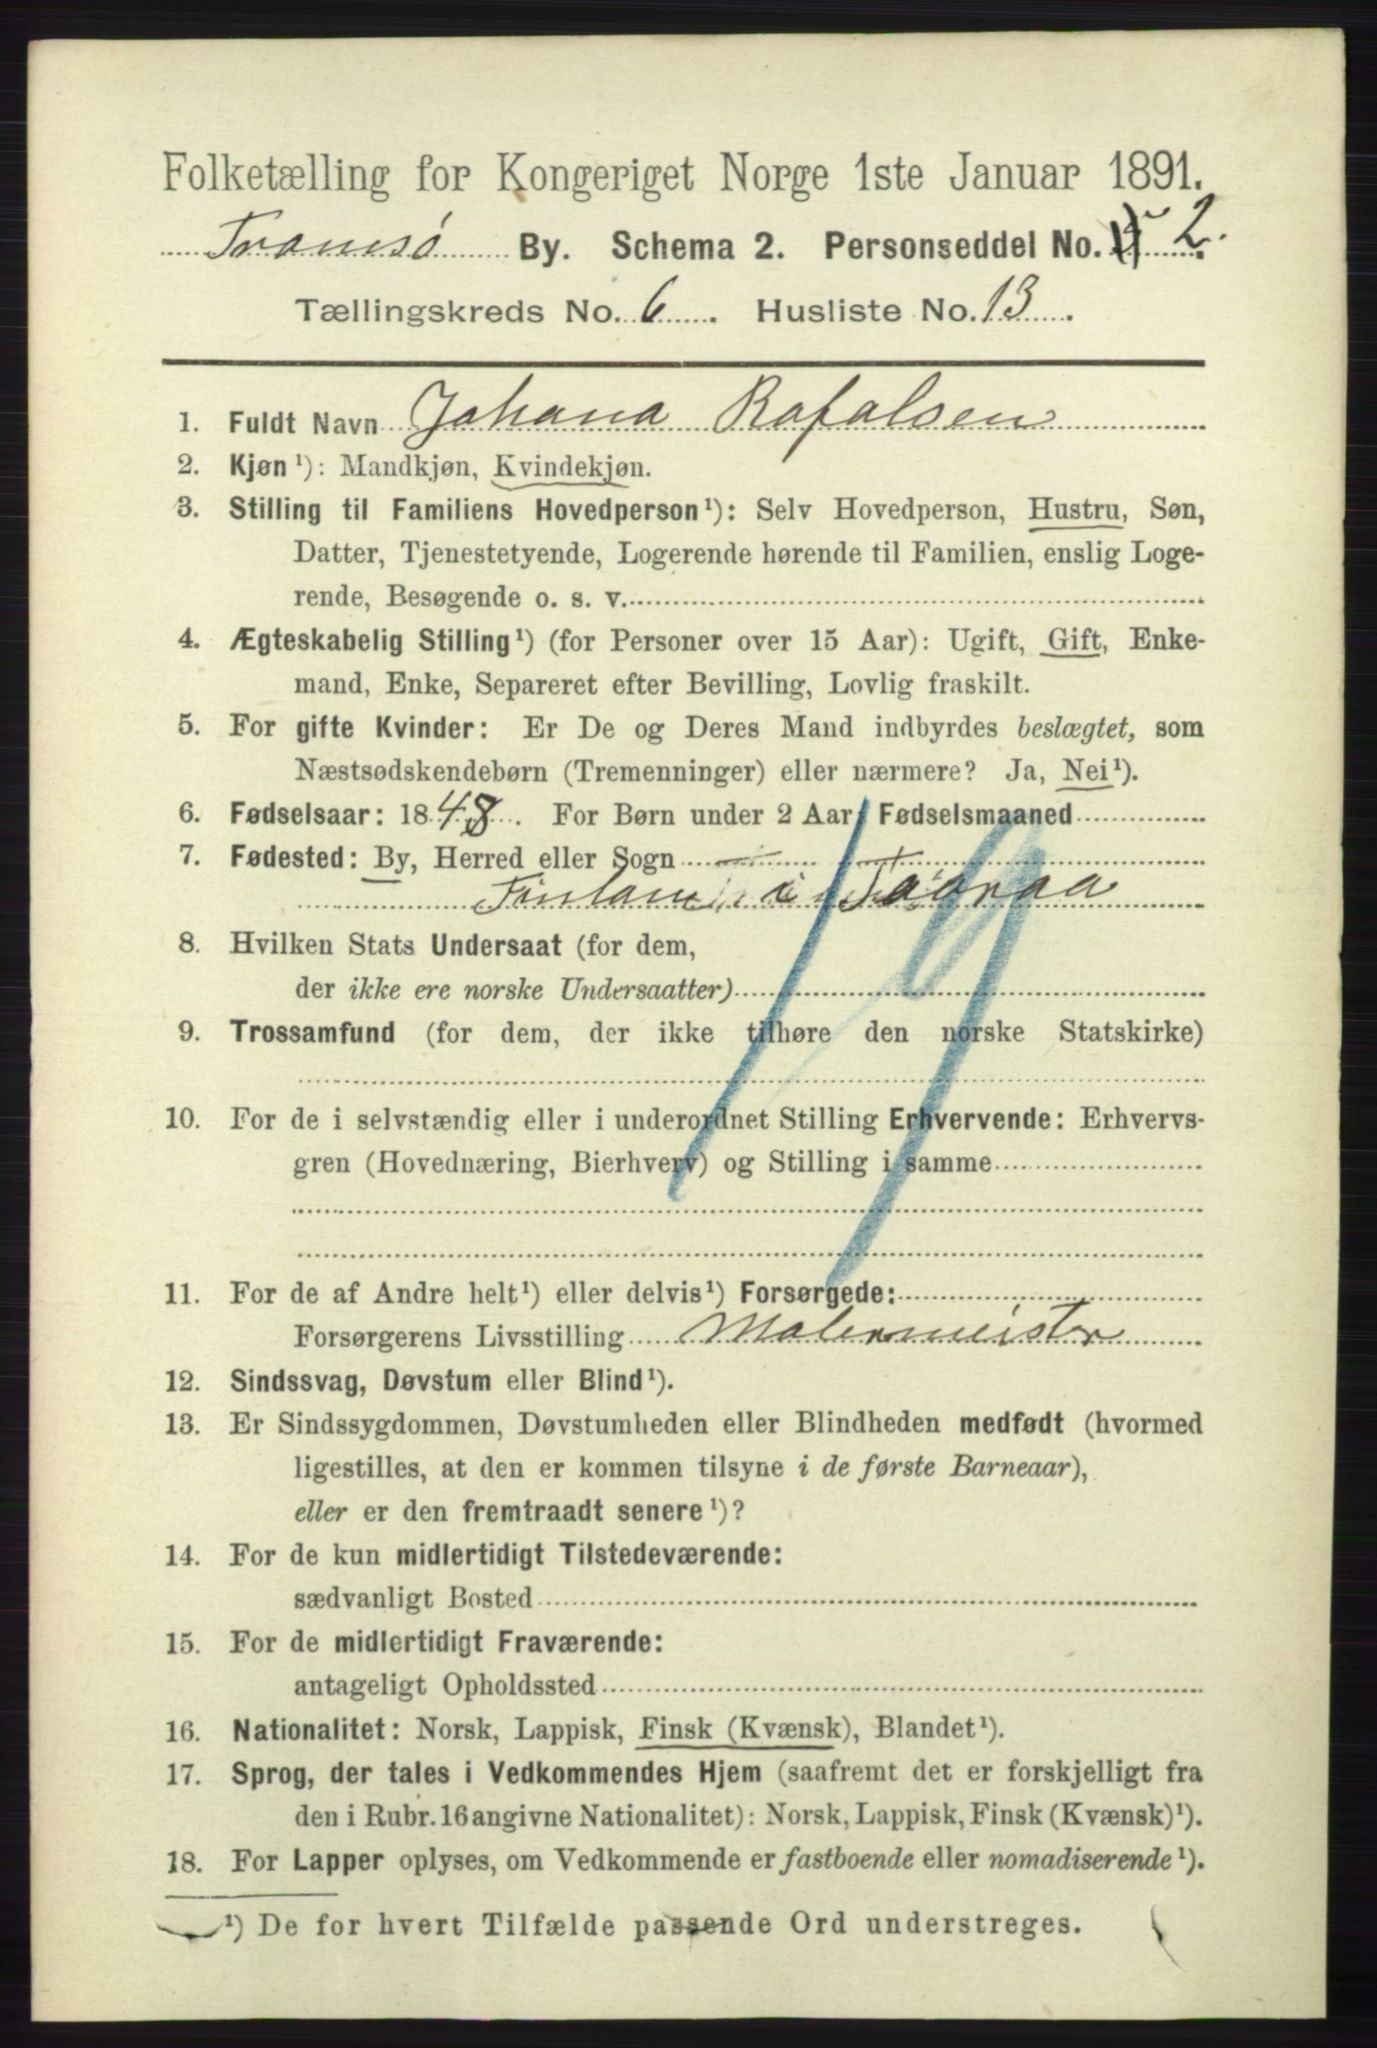 Folketælling for Kongeriget Norge 1ste Januar 1891.
Tromsø By. Schema 2. Personseddel No. 2.
Tællingskreds No. 6. Husliste No. 13.
1. Fuldt Navn Johana Rafalsen
2. Kjøn ¹): Mandkjøn, Kvindekjøn.
3. Stilling til Familiens Hovedperson ¹): Selv Hovedperson, Hustru, Søn,
Datter, Tjenestetyende, Logerende hørende til Familien, enslig Loge-
rende, Besøgende o. s. v.
4. Ægteskabelig Stilling ¹) (for Personer over 15 Aar): Ugift, Gift, Enke-
mand, Enke, Separeret efter Bevilling, Lovlig fraskilt.
5. For gifte Kvinder: Er De og Deres Mand indbyrdes beslægtet, som
Næstsødskendebørn (Tremenninger) eller nærmere? Ja, Nei ¹).
6. Fødselsaar: 1848. For Børn under 2 Aar: Fødselsmaaned
7. Fødested: By, Herred eller Sogn
Finland i
8. Hvilken Stats Undersaat (for dem,
der ikke ere norske Undersaatter)
9. Trossamfund (for dem, der ikke tilhøre den norske Statskirke)
10. For de i selvstændig eller i underordnet Stilling Erhvervende: Erhvervs-
gren (Hovednæring, Bierhverv) og Stilling i samme
11. For de af Andre helt ¹) eller delvis ¹) Forsørgede:
Forsørgerens Livsstilling Malermeister
12. Sindssvag, Døvstum eller Blind ¹).
13. Er Sindssygdommen, Døvstumheden eller Blindheden medfødt (hvormed
ligestilles, at den er kommen tilsyne i de første Barneaar),
eller er den fremtraadt senere ¹)?
14. For de kun midlertidigt Tilstedeværende:
sædvanligt Bosted
15. For de midlertidigt Fraværende:
antageligt Opholdssted
16. Nationalitet: Norsk, Lappisk, Finsk (Kvænsk), Blandet ¹).
17. Sprog, der tales i Vedkommendes Hjem (saafremt det er forskjelligt fra
den i Rubr. 16 angivne Nationalitet): Norsk, Lappisk, Finsk (Kvænsk) ¹).
18. For Lapper oplyses, om Vedkommende er fastboende eller nomadiserende ¹).
¹) De for hvert Tilfælde passende Ord understreges.